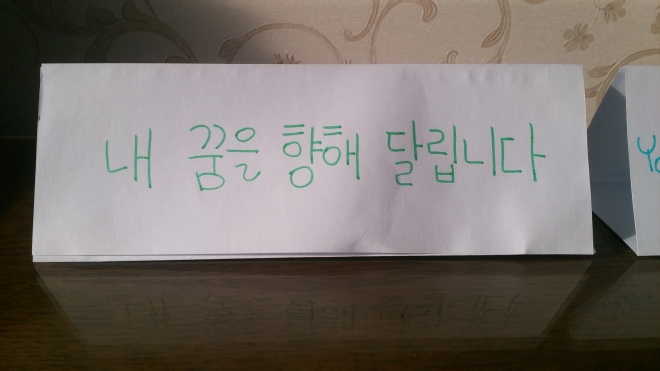 내 꿈을 향해 달립니다
Yo